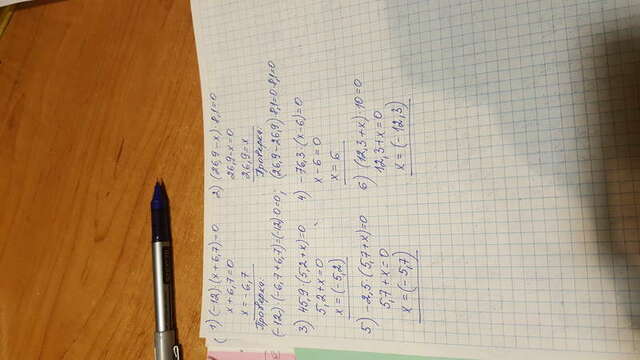 1) (-12)·(x+6,7)=0
x+6,7=0
x=-6,7
Проверка:
2) (26,9-x)·8,1=0
26,9-x=0
26,9=x
Проверка:
(-12)·(-6,7+6,7)=(-12)·0=0; (26,9-26,9)·8,1=0·8,1=0
3) 45,9·(5,2+x)=0
5,2+x=0
x=(-5,2)
4) -76,3·(x-6)=0
x-6=0
x=6
5) -2,5·(5,7+x)=0
5,7+x=0
x=(-5,7)
6) (12,3+x)·10=0
12,3+x=0
x=(-12,3)